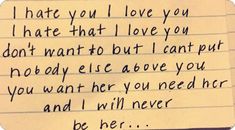 I hate you I love you
I hate that I love you
don't want to but I cant put
nobody else above you
you want her you need her
and I will never
be her...